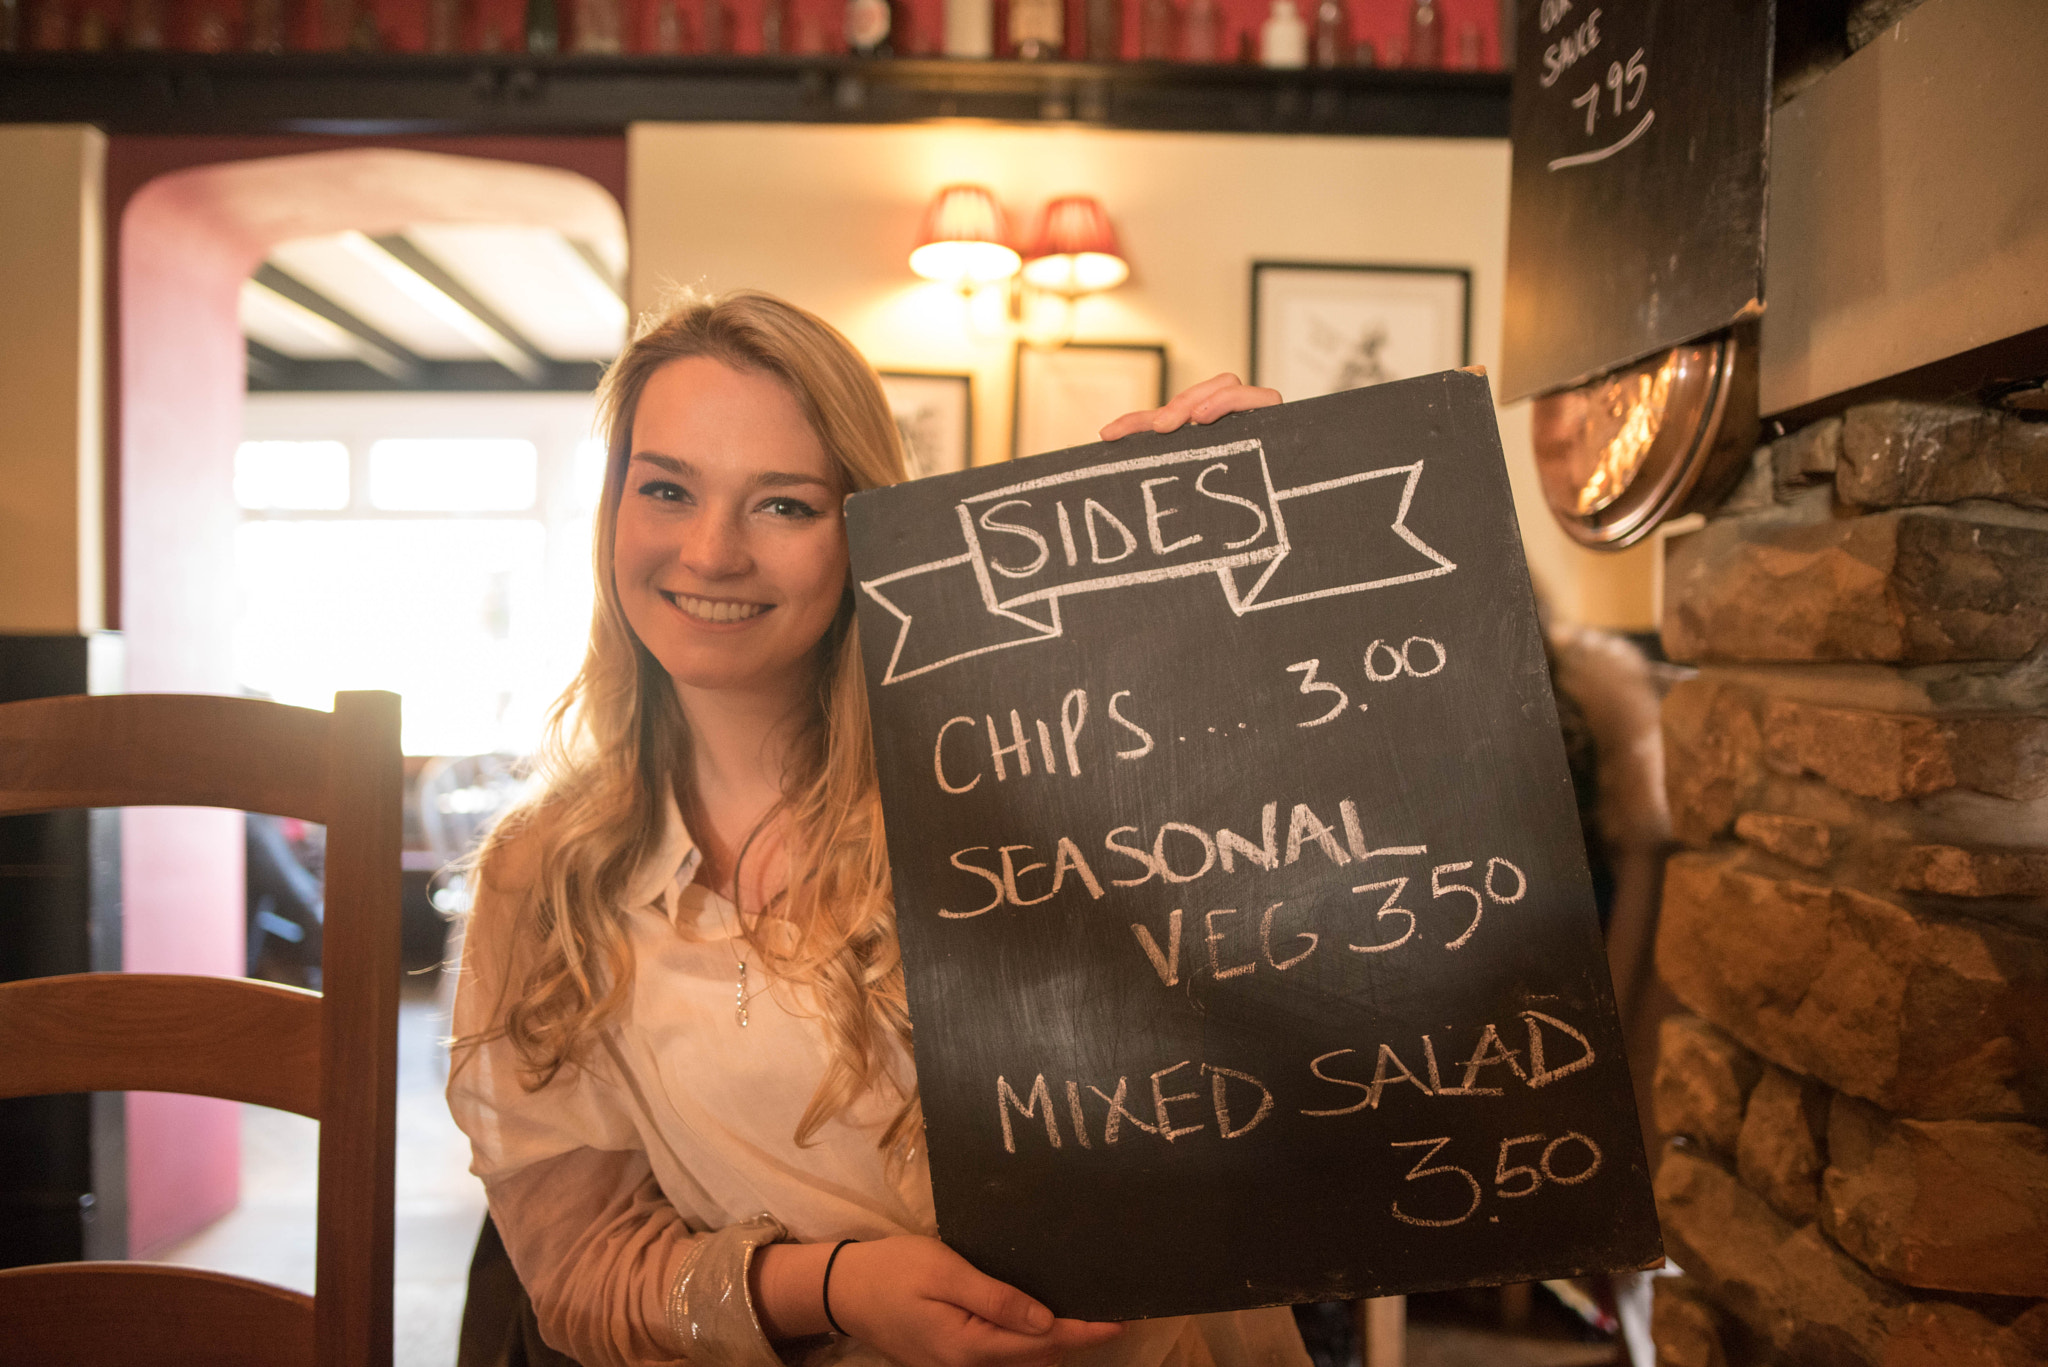 SIDES
CHIPS .... 3.00
SEASONAL
VEG 3.50
MIXED SALAD
3.50
SAUCE
7.95